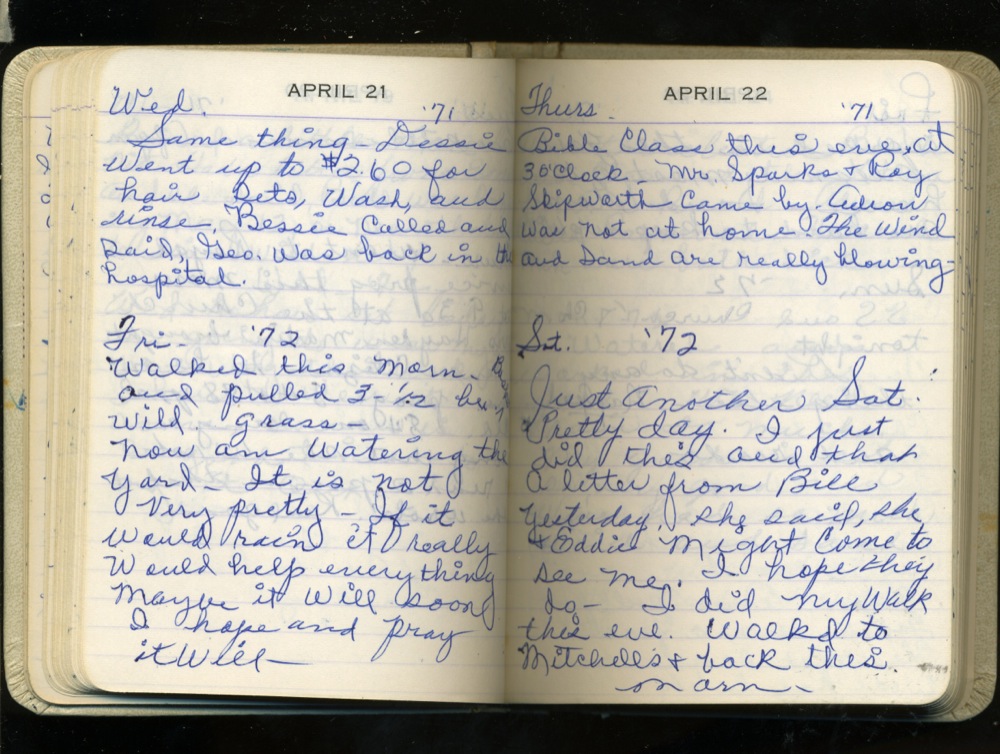 APRIL 21
Wed. '71
Same thing - Dessie
Went up to $2.60 for
hair sets, Wash, and
rinse. Bessie Called and
said, Geo. Was back in the
hospital.
Fri- '72
Walked this Morn-
and pulled 3-1/2
Wild Grass-
Now am Watering the
yard- It is not
Very pretty- If it
Would rain it really
Would help everything
Maybe it Will soon
I hope and pray
it Will-
APRIL 22
Thurs. '71
Bible Class this eve, at
3 o'Clock- Mr. Sparks &
Skipworth Came by.
Was not at home. The Wind
and Sand are really blowing-
Sat. '72
Just Another Sat.
Pretty day. I just
did this and that
A letter from Bill
yesterday, she said, she
& Eddie Might Come to
see me. I hope they
do- I did my Walk
this eve. Walkd to
Mitchells & back this.
morn-